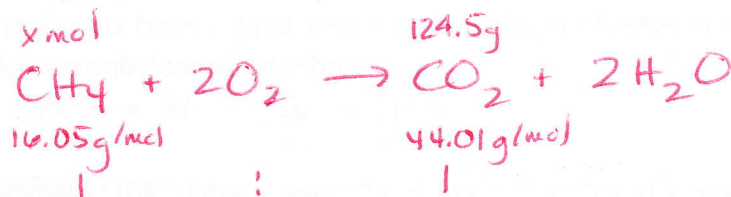 x mol 124.5g
CH4 + 2O2 → CO2 + 2H2O
16.05g/mol 44.01g/mol
1 : 1